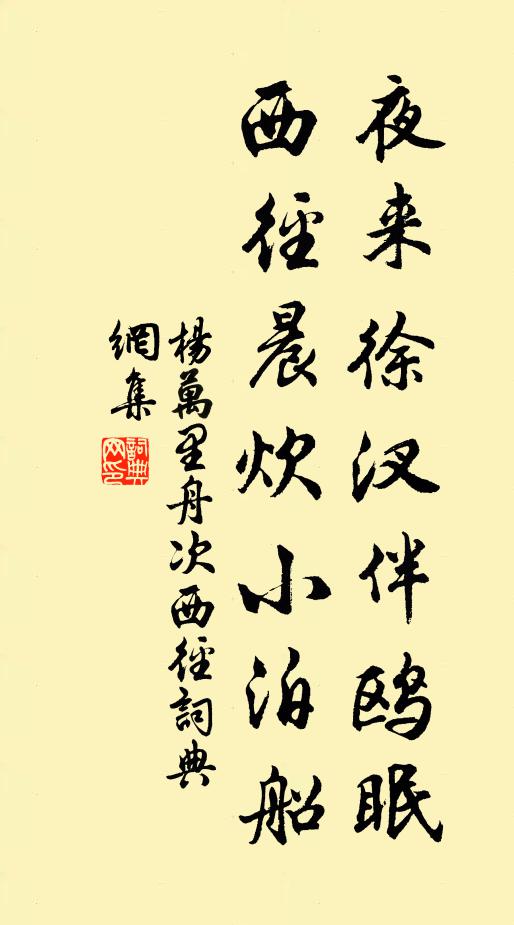 夜来徐汊伴鸥眠
西徑晨炊小泊船
楊萬里舟次西徑詞典
網集
詞典
网印